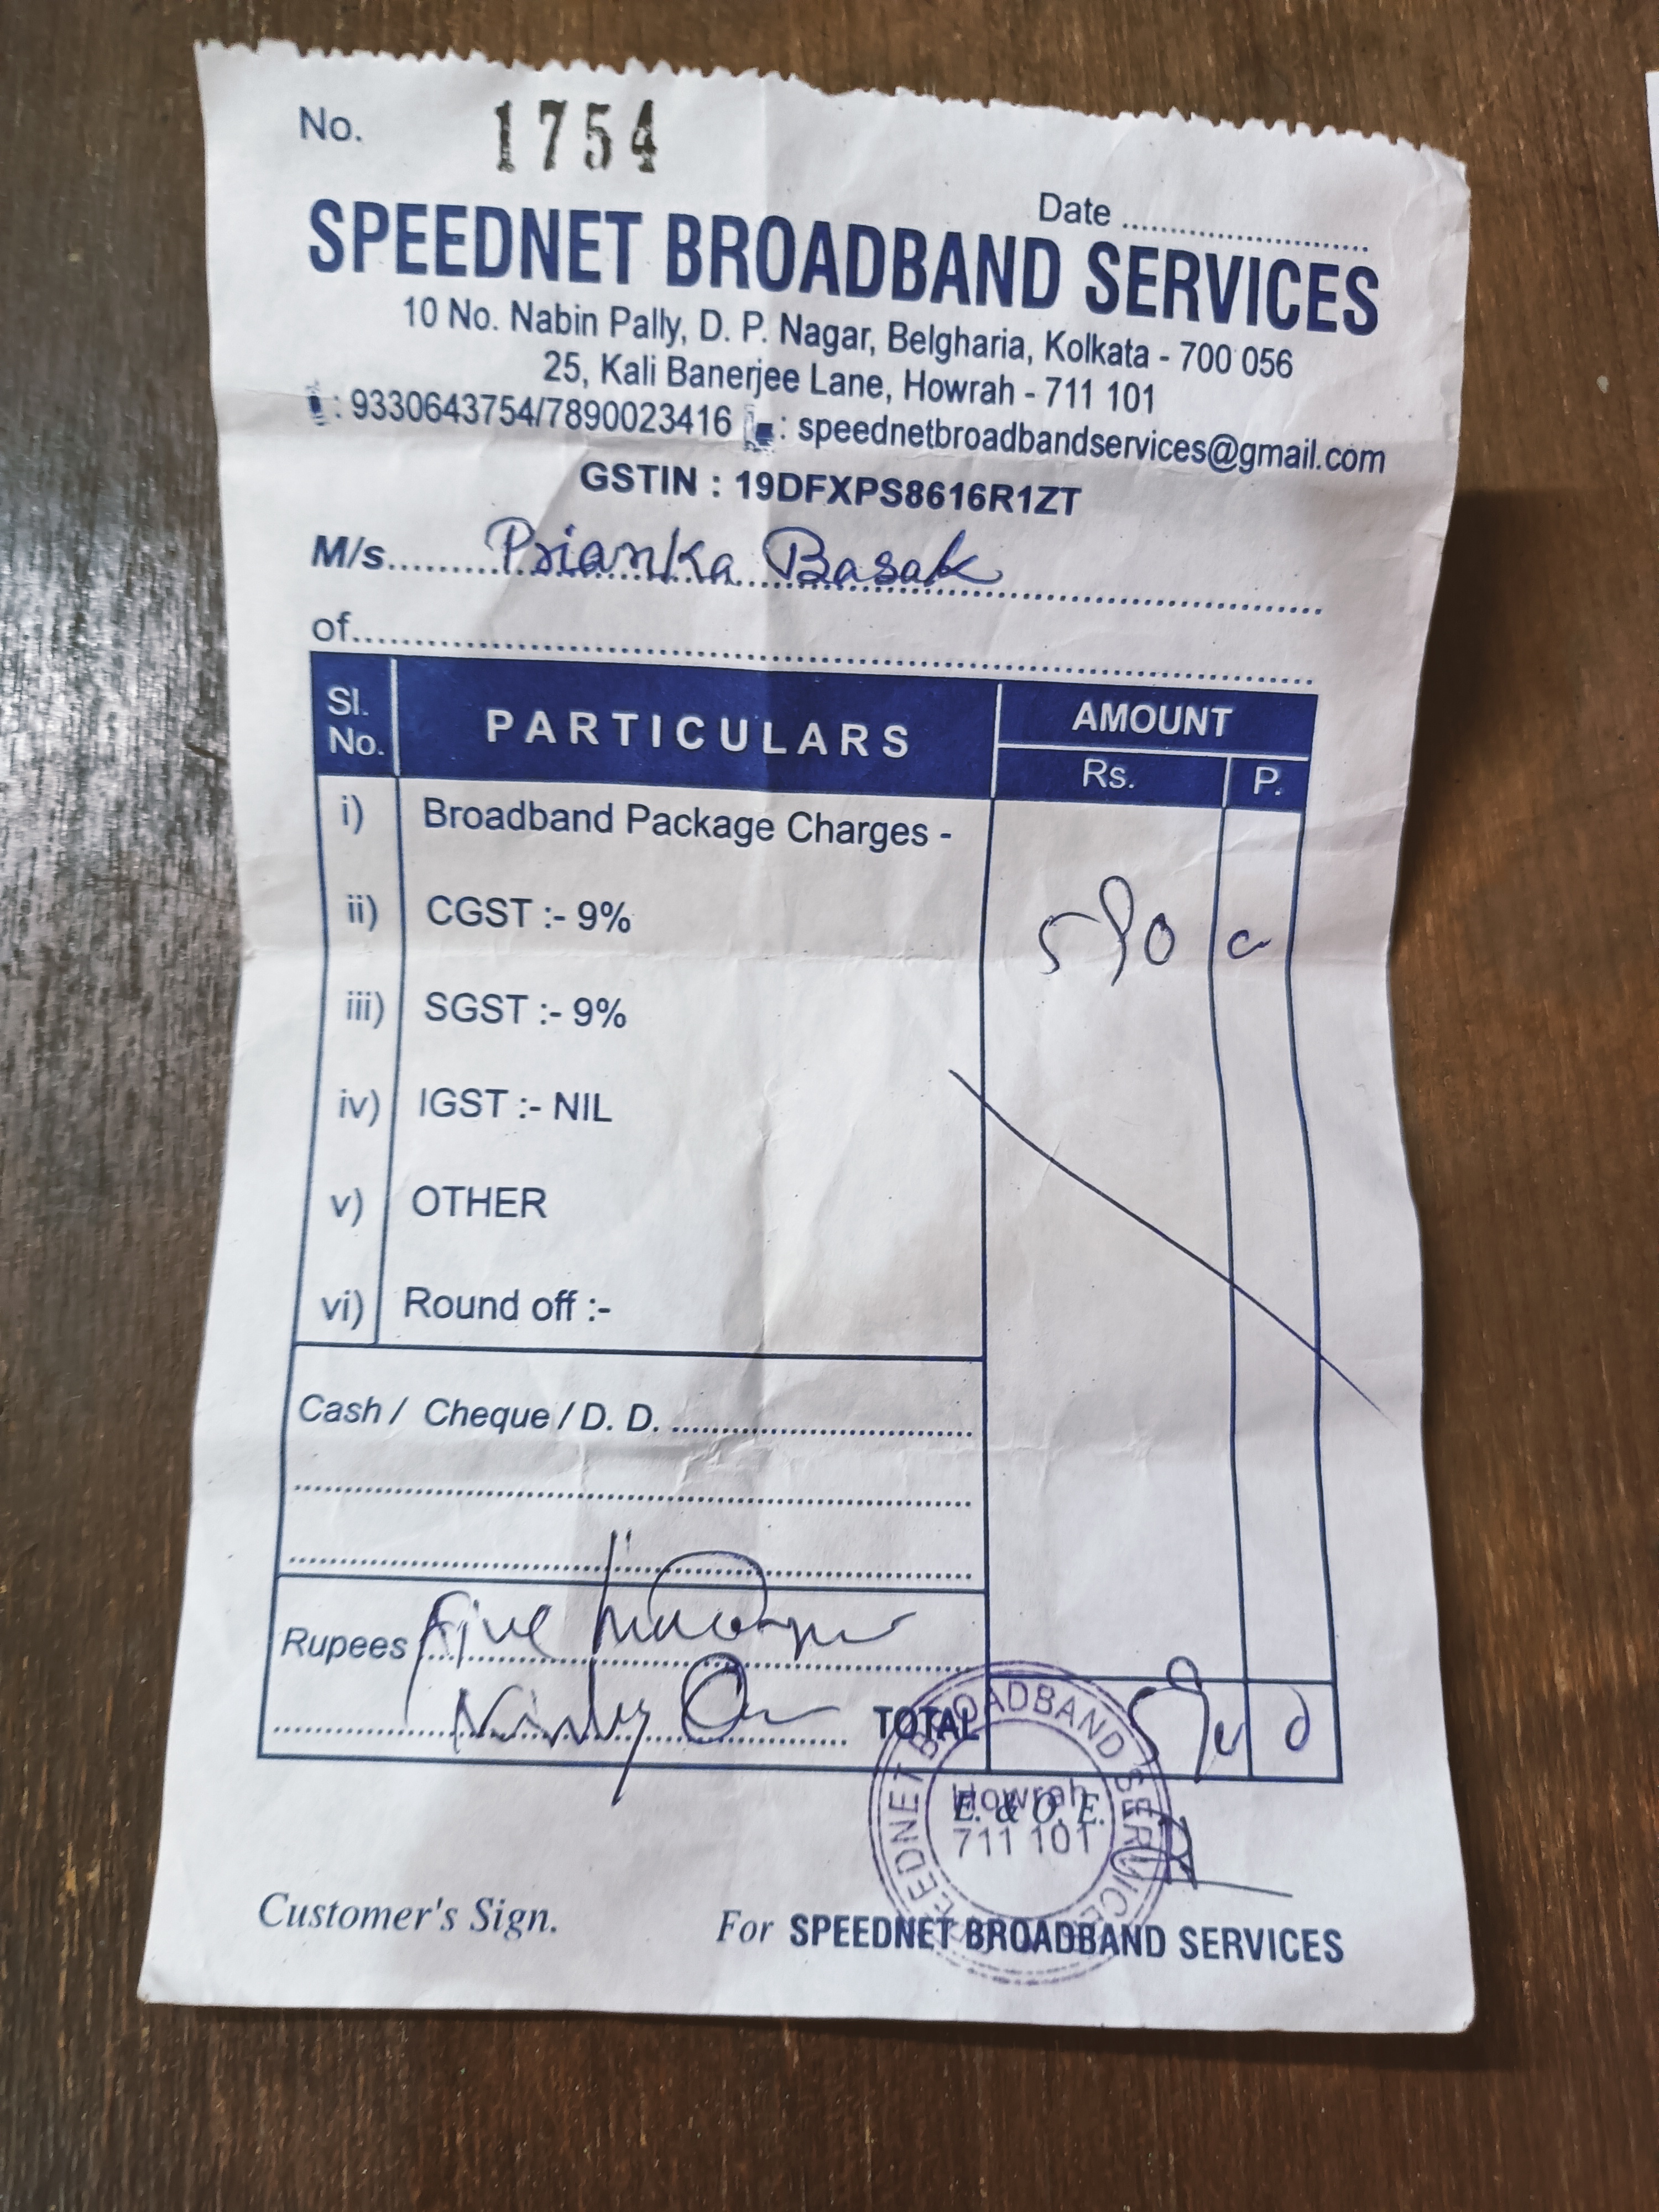 No. 1754
Date ........................
SPEEDNET BROADBAND SERVICES
10 No. Nabin Pally, D. P. Nagar, Belgharia, Kolkata - 700 056
25, Kali Banerjee Lane, Howrah - 711 101
: 9330643754/7890023416 : speednetbroadbandservices@gmail.com
GSTIN : 19DFXPS8616R1ZT
M/s. Prianka Basak
of
Sl. No. PARTICULARS AMOUNT
Rs. P.
i) Broadband Package Charges -
ii) CGST :- 9% 590
iii) SGST :- 9%
iv) IGST :- NIL
v) OTHER
vi) Round off :-
Cash / Cheque / D. D.
Rupees Five
Ninty TOTAL
E. & O. E.
SPEEDNET BROADBAND SERVICES
Howrah
711 101
Customer's Sign. For SPEEDNET BROADBAND SERVICES